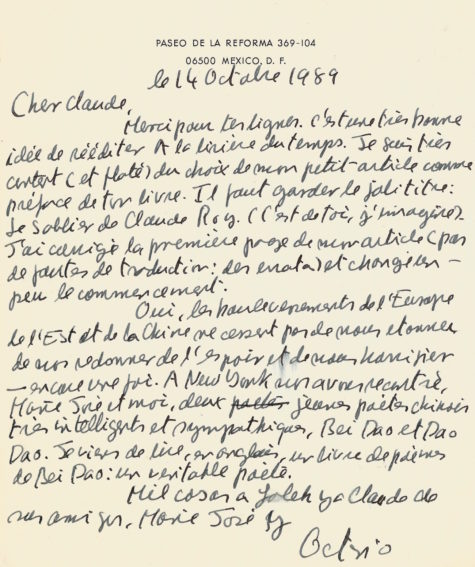 PASEO DE LA REFORMA 369-104
06500 MEXICO, D. F.
le 14 Octobre 1989
Cher Claude,
Merci pour tes lignes. C'est une très bonne
idée de rééditer A la lisière du temps. Je suis très
content (et flaté) du choix de mon petit-article comme
préface de ton livre. Il faut garder le joli titre:
Le Sablier de Claude Roy. (C'est de toi, j'imagine).
J'ai corrigé la première page de mon article (pas
de fautes de traduction: des errata) et changé un
peu le commencement.
Oui, les bouleversements de l'Europe
de l'Est et de la Chine ne cessent pas de nous etonner
de nous redonner de l'espoir et de nous horrifier
— encore une foi. A New York nous avons recontré,
Marie José et moi, deux jeunes poètes chinois
très intelligents et sympathiques, Bei Dao et Dao
Dao. Je viens de lire, en anglais, un livre de poèmes
de Bei Dao: un veritable poète.
Mil cosas a Loleh y a Claude de
sus amigos, Marie José y
Octavio